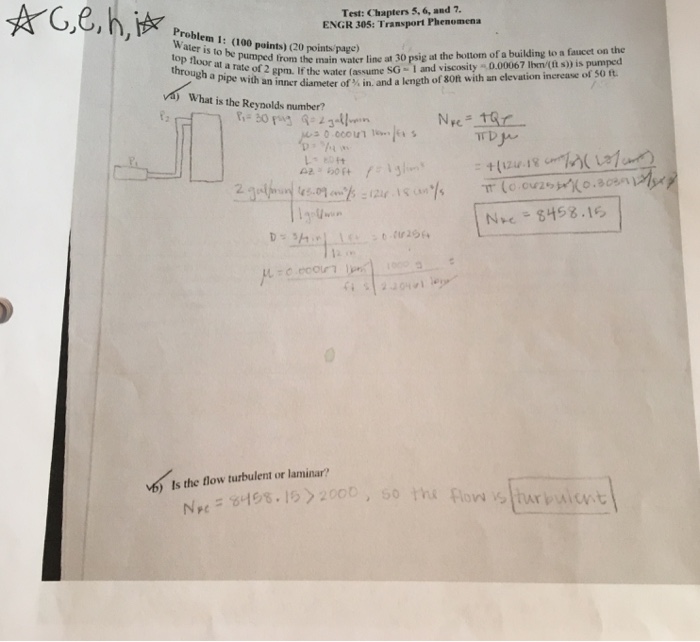 ☆C,e,h,i☆
Test: Chapters 5, 6, and 7.
ENGR 305: Transport Phenomena
Problem 1: (100 points) (20 points/page)
Water is to be pumped from the main water line at 30 psig at the bottom of a building to a faucet on the
top floor at a rate of 2 gpm. If the water (assume SG = 1 and viscosity = 0.00067 lbm/(ft s)) is pumped
through a pipe with an inner diameter of ¾ in. and a length of 80ft with an elevation increase of 50 ft.
a) What is the Reynolds number?
P2
P1
P1 = 30 psig Q = 2 gal/min
μ = 0.00067 lbm/ft s
D = 3/4 in
L = 80 ft
ΔZ = 50 ft ρ = 1 g/cm³
NRe = 4Qρ
πDμ
2 gal/min | 63.09 cm³/s = 126.18 cm³/s
1 gal/min
= 4(126.18 cm³/s)(1 g/cm³)
D = 3/4 in | 1 ft = 0.0625 ft
12 in
NRe = 8458.15
μ = 0.00067 lbm | 1000 g =
ft s
b) Is the flow turbulent or laminar?
NRe = 8458.15 > 2000, so the flow is turbulent